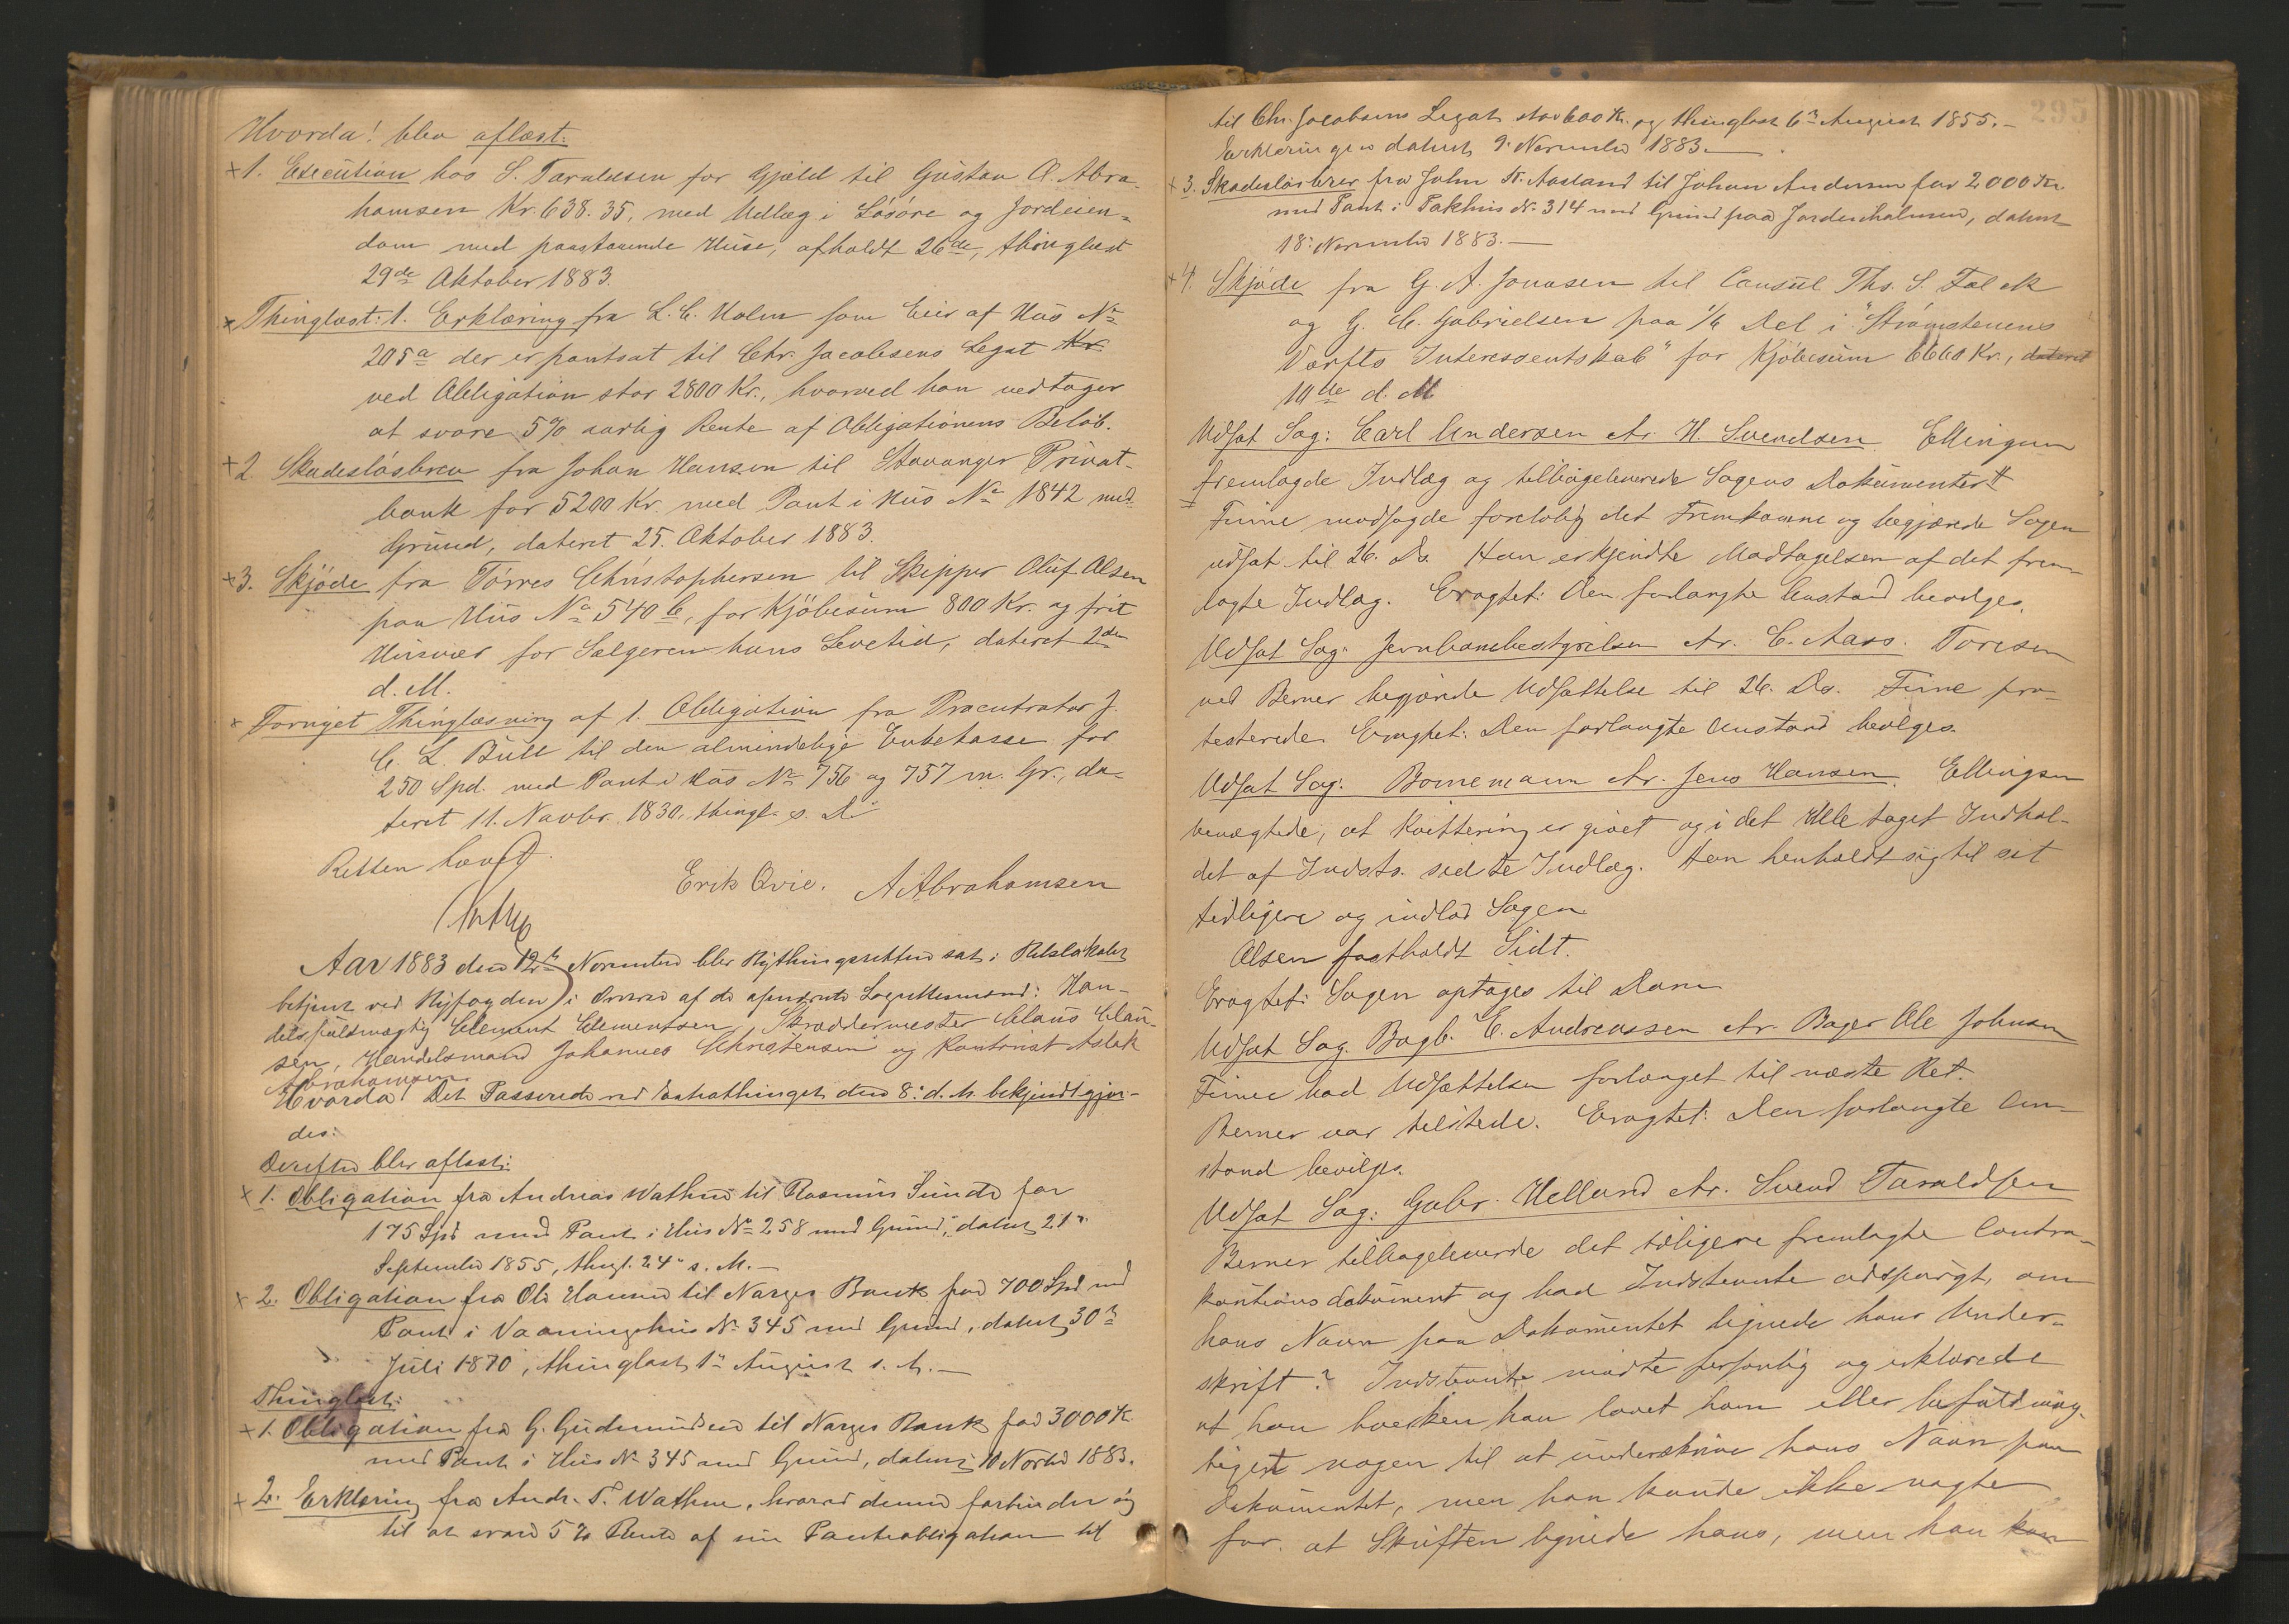 Hvorda! blev aflæst:
+1. Execution hos S. Taraldsen for Gjæld til Gustav A. Abra-
hamsen Kr. 638.35, med Udlæg i Lösöre og Jordeien-
dom med paastaaende Huse, afholdt 26de, thinglæst
29de Oktober 1883.
+Thinglæst: 1. Erklæring fra L. C. Holm som Eier af Hus No
205a der er pantsat til Chr. Jacobsens Legat Kr.
ved Obligation stor 2800 Kr., hvorved han vedtager
at svare 5% aarlig Rente af Obligationens Belöb.
+2. Skadeslösbrev fra Johan Hansen til Stavanger Privat-
bank for 5200 Kr. med Pant i Hus No 1842 med
Grund, dateret 25. Oktober 1883.
+3. Skjöde fra Törres Christophersen til Skipper Oluf Olsen
paa Hus No 540 b, for Kjöbesum 800 Kr. og frit
Huusvær for Sælgeren hans Levetid, dateret 2den
d. M.
+ Fornyet Thinglæsning af 1. Obligation fra Procurator J.
C. L. Büll til den almindelige Enkekasse for
250 Spd. med Pant i Hus No 756 og 757 m. Gr., da-
teret 11. Novbr. 1830, thingl. s. D.
Retten hævet.
Erik Qvie. A Abrahamsen
Aar 1883 den 12te November blev Bythingsretten sat i Retslokalet
betjent ved Byfogden i Overvær af de opnævnte Laugrettesmænd: Han-
delsfuldmægtig Clement Clementsen, Skræddermester Claus Clau-
sen, Handelsmand Johannes Christensen og Kontorist Aslak
Abrahamsen.
Hvorda! Det Passerede ved Extrathinget den 8: d. M. bekjendtgjor-
des:
Derefter blev aflæst:
+ 1. Obligation fra Andreas Wathne til Rasmus Sunde for
175 Spd med Pant i Hus No 258 med Grund, datert 21
September 1855, thingl. 24 s. M. —
+ 2. Obligation fra Ole Hansen til Norges Bank for 700 Spd med
Pant i Vaaningshus No 345 med Grund, datert 30
Juli 1870, thinglæst 1 August s. A. —
Thinglæst:
+1. Obligation fra G. Gudmundsen til Norges Bank for 3000 Kr
med Pant i Hus No 345 med Grund, datert 10 Novbr 1883.
+ 2. Erklæring fra Andr. T. Wathne, hvorved denne forbinder sig
til at svare 5% Rente af sin Panteobligation til
295
til Chr. Jacobsens Legat stor 600 Kr. og thinglæst 6 August 1855. —
Erklæringen datert 9. November 1883. —
+ 3. Skadeslösbrev fra John K. Aasland til Johan Andersen for 2000 Kr.
med Pant i Pakhus No 314 med Grund paa Jorden­holmen, datert
18: November 1883. —
+4. Skjöde fra G. A. Jonasen til Consul Ths. S. Falck
og G. C. Gabrielsen paa 1/6 Del i "Strömstenens
Værfts Interessentskab" for Kjöbesum 6660 Kr., dateret
10de d. M
Udsat Sag: Carl Andersen ctr. H. Svendsen. Ellingsen
fremlagde Indlæg og tilbageleverede Sagens Dokumenter #
Finne modsagde forelöbig det Fremkomne og begjærede Sagen
udsat til 26. Ds. Han erkjendte Modtagelsen af det frem-
lagte Indlæg. Eragtet: Den forlangte Anstand bevilges.
Udsat Sag: Jernbanebestyrelsen ctr. C. Aass. Toresen
ved Berner begjærede Udsættelse til 26. Ds. Finne pro-
testerede. Eragtet: Den forlangte Anstand bevilges.
Udsat Sag: Bornemann ctr. Jens Hansen. Ellingsen
benægtede, at Kvittering er givet og i det Hele taget Indhol-
det af Indsts. sidste Indlæg. Han henholdt sig til sit
tidligere og indlod Sagen.
Olsen fastholdt Sidt.
Eragtet: Sagen optages til Dom
Udsat Sag: Bagb. E. Andreassen ctr. Bager Ole Johnsen
Finne bad Udsættelsen forlænget til næste Ret.
Berner var tilstede. Eragtet: Den forlangte An-
stand bevilges.
Udsat Sag: Gabr. Helland ctr. Svend Taraldsen
Berner tilbageleverede det tidligere fremlagte Contra-
kautionsdokument og bad Indstevnte adspurgt, om
hans Navn paa Dokumentet lignede hans Under-
skrift? Indstevnte mödte personlig og erklærede
at han hverken han lovet ham eller befuldmæg-
tiget nogen til at underskrive hans Navn paa
Dokumentet, men han kunde ikke nægte
for, at Skriften lignede hans, men han kan